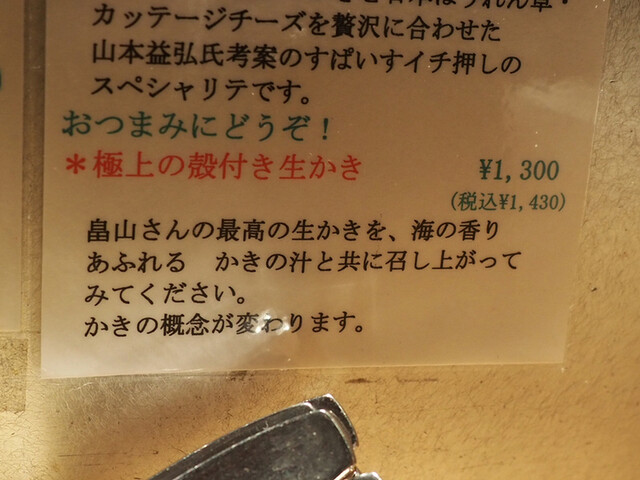 ほうれん草・
カッテージチーズを贅沢に合わせた
山本益弘氏考案のすぱいすイチ押しの
スペシャリテです。
おつまみにどうぞ！
＊極上の殻付き生かき ¥1,300
(税込¥1,430)
畠山さんの最高の生かきを、海の香り
あふれる　かきの汁と共に召し上がって
みてください。
かきの概念が変わります。